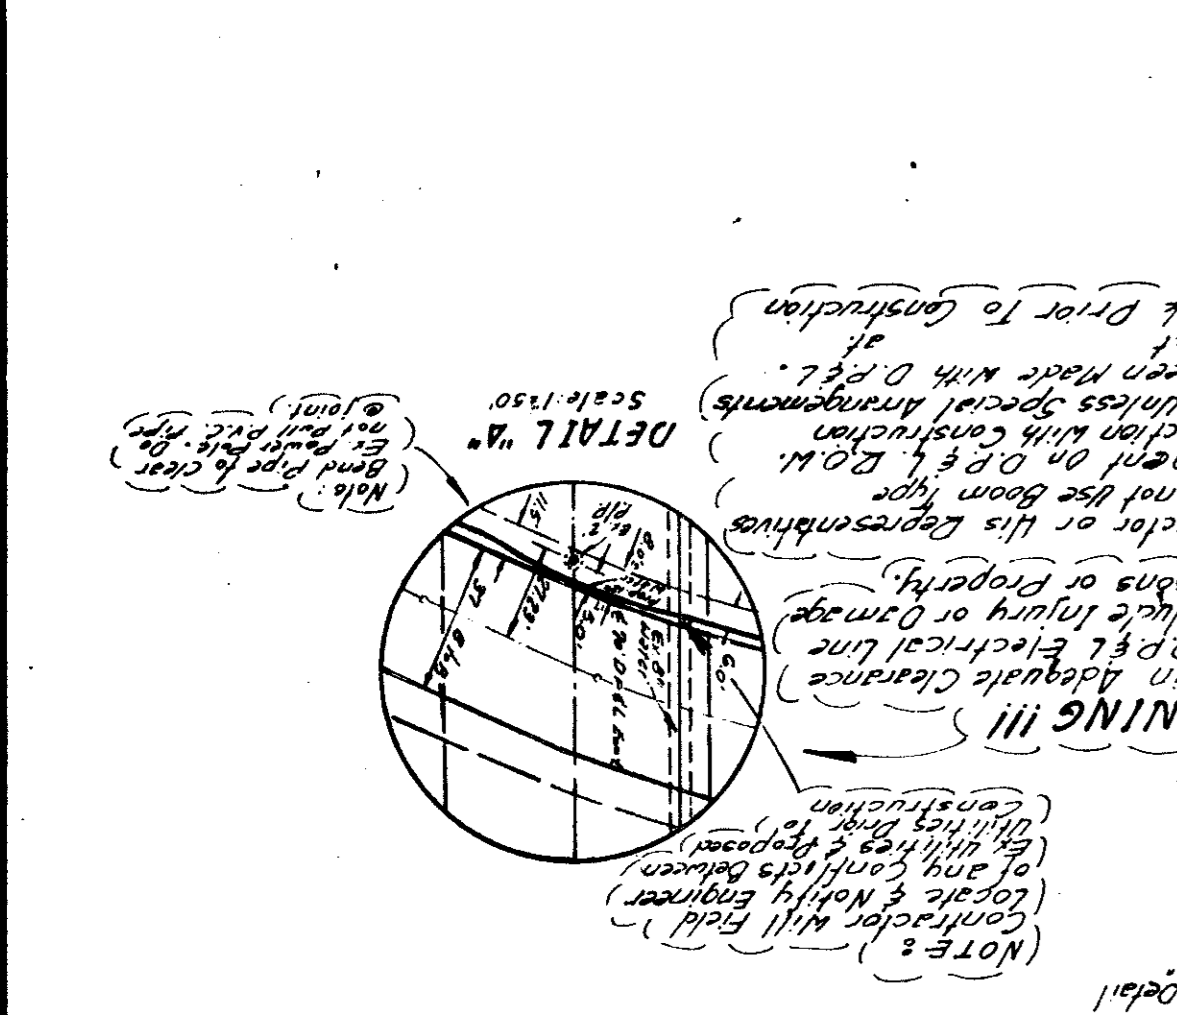 Detail
(NOTE:)
Contractor Will Field
Locate & Notify Engineer
of any Conflicts Between
Ex Utilities & Proposed
Utilities Prior To
Construction
NING !!!
in Adequate Clearance
D.P.&L Electrical Line
lude Injury or Damage
sons or Property.
ctor or His Representatives
not Use Boom Type
ment On D.P.& L. R.O.W.
ction With Construction
Unless Special Arrangements
een Made With D.P.&L.
at
& Prior To Construction
6.0'
Ex. 8"
Water
37' B to B
5.0'
11.5'
Note:
Bend Pipe to clear
Ex Power Pole. Do
not pull P.V.C. Pipe
@ joint.
DETAIL "A"
Scale: 1"=50'